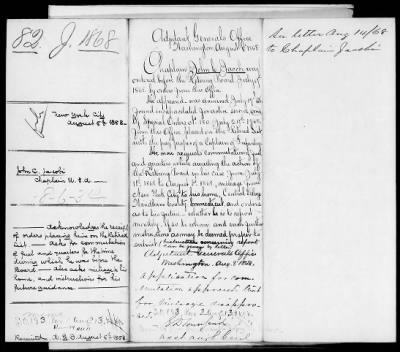 82. J. 1868
New York City
August 5th 1868.
John C. Jacobi
Chaplain U.S.A.
Acknowledges the receipt
of orders placing him on the Retired
List. Asks for commutation
of fuel and quarters for the time
during which he was before the
Board. Also asks mileage to his
home, and instructions for his
future guidance.
Received A.G.O. August 6th 1868
Adjutant General's Office
Washington August 8 1868.
Chaplain John C. Jacobi was
ordered before the Retiring Board July
by order from this Office.
He appeared was examined July
and
Special Orders No. 180 July 29th 1868
from this Office placed on the Retired List
with the pay proper of a Captain of Infantry.
He now requests commutation of fuel
and quarters while awaiting the action of
the Retiring Board in his case from July
1st 1868 to August 1st 1868, mileage from
New York City to his home,
County Connecticut, and orders
as to his future, whether he is to report
monthly, if so to whom and such further
instructions as may be deemed proper to
submit. Instructions concerning report
can be given by letter.
Adjutant General's Office
Washington Aug. 8 1868.
Application for com-
mutation approved. That
for mileage disapprov-
ed.
E.D. Townsend
Asst Adjt Genl
See letter Aug 14/68
to Chaplain Jacobi